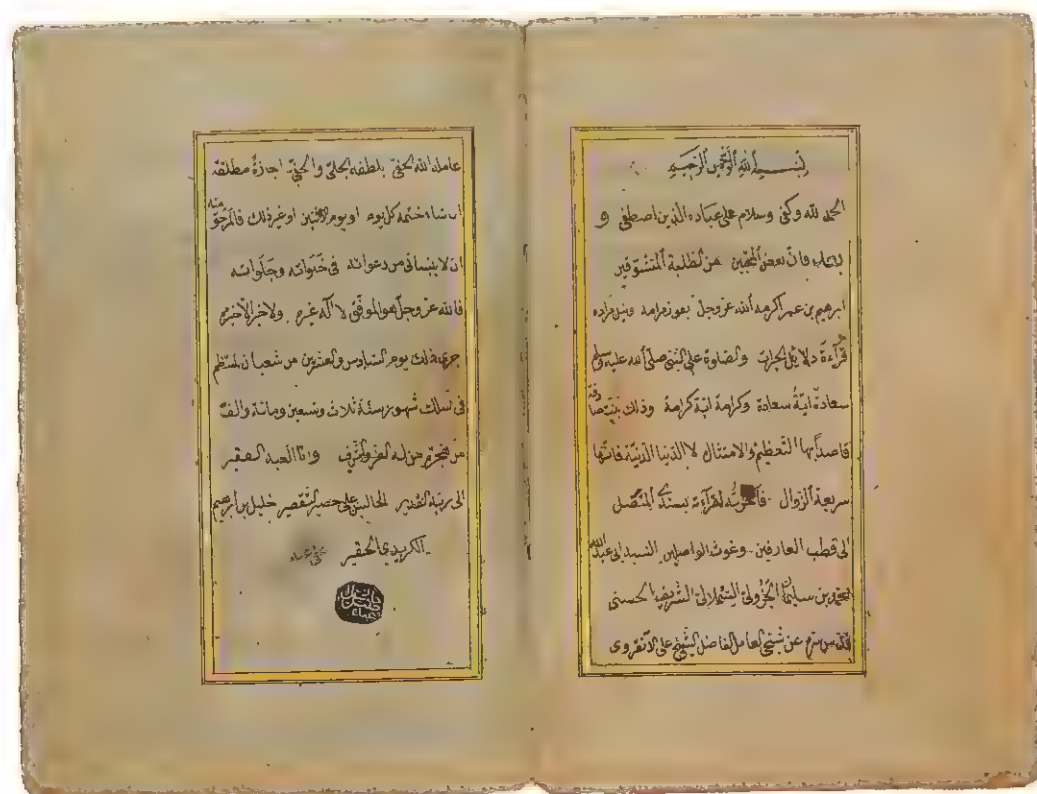 بسم الله الرحمن الرحيم
الحمد لله وكفى وسلام على عباده الذين اصطفى و
بعد فان بعض المحبين من الطلبة المتشوقين
ابرهيم بن عمر اكرمه الله عز وجل بفوز مرامه ونيل مراده
قراءة دلائل الخيرات والصلوة على النبي صلى الله عليه وسلم
سعادة اية سعادة وكرامة اية كرامة وذلك بنية صادقة
قاصدا بها التعظيم والامتثال لا الدنيا الدنية فانها
سريعة الزوال فاجزته لقراءته بسندي المتصل
الى قطب العارفين وغوث الواصلين السيد ابي عبد الله
محمد بن سليمان الجزولي الشريف الحسني
قدس سره عن شيخي العامل الفاضل الشيخ علي الانقروي
عامله الله الخفي بلطفه الجلي والخفي اجازة مطلقة
ان شاء ختمه كل يوم او يوم الاثنين او غير ذلك فالمرجو منه
ان لا ينساني من دعواته في خلواته وجلواته
فالله عز وجل هو الموفق لا اله غيره ولا خير الا خيره
جرى ذلك يوم السادس والعشرين من شعبان المنتظم
في سلك شهور سنة ثلاث وتسعين ومائة والف
من هجرة من له العز والشرف وانا العبد الفقير
الى ربه القدير الجالس على حصير التقصير خليل بن ابرهيم
الكريدي الحقير عفي عنه